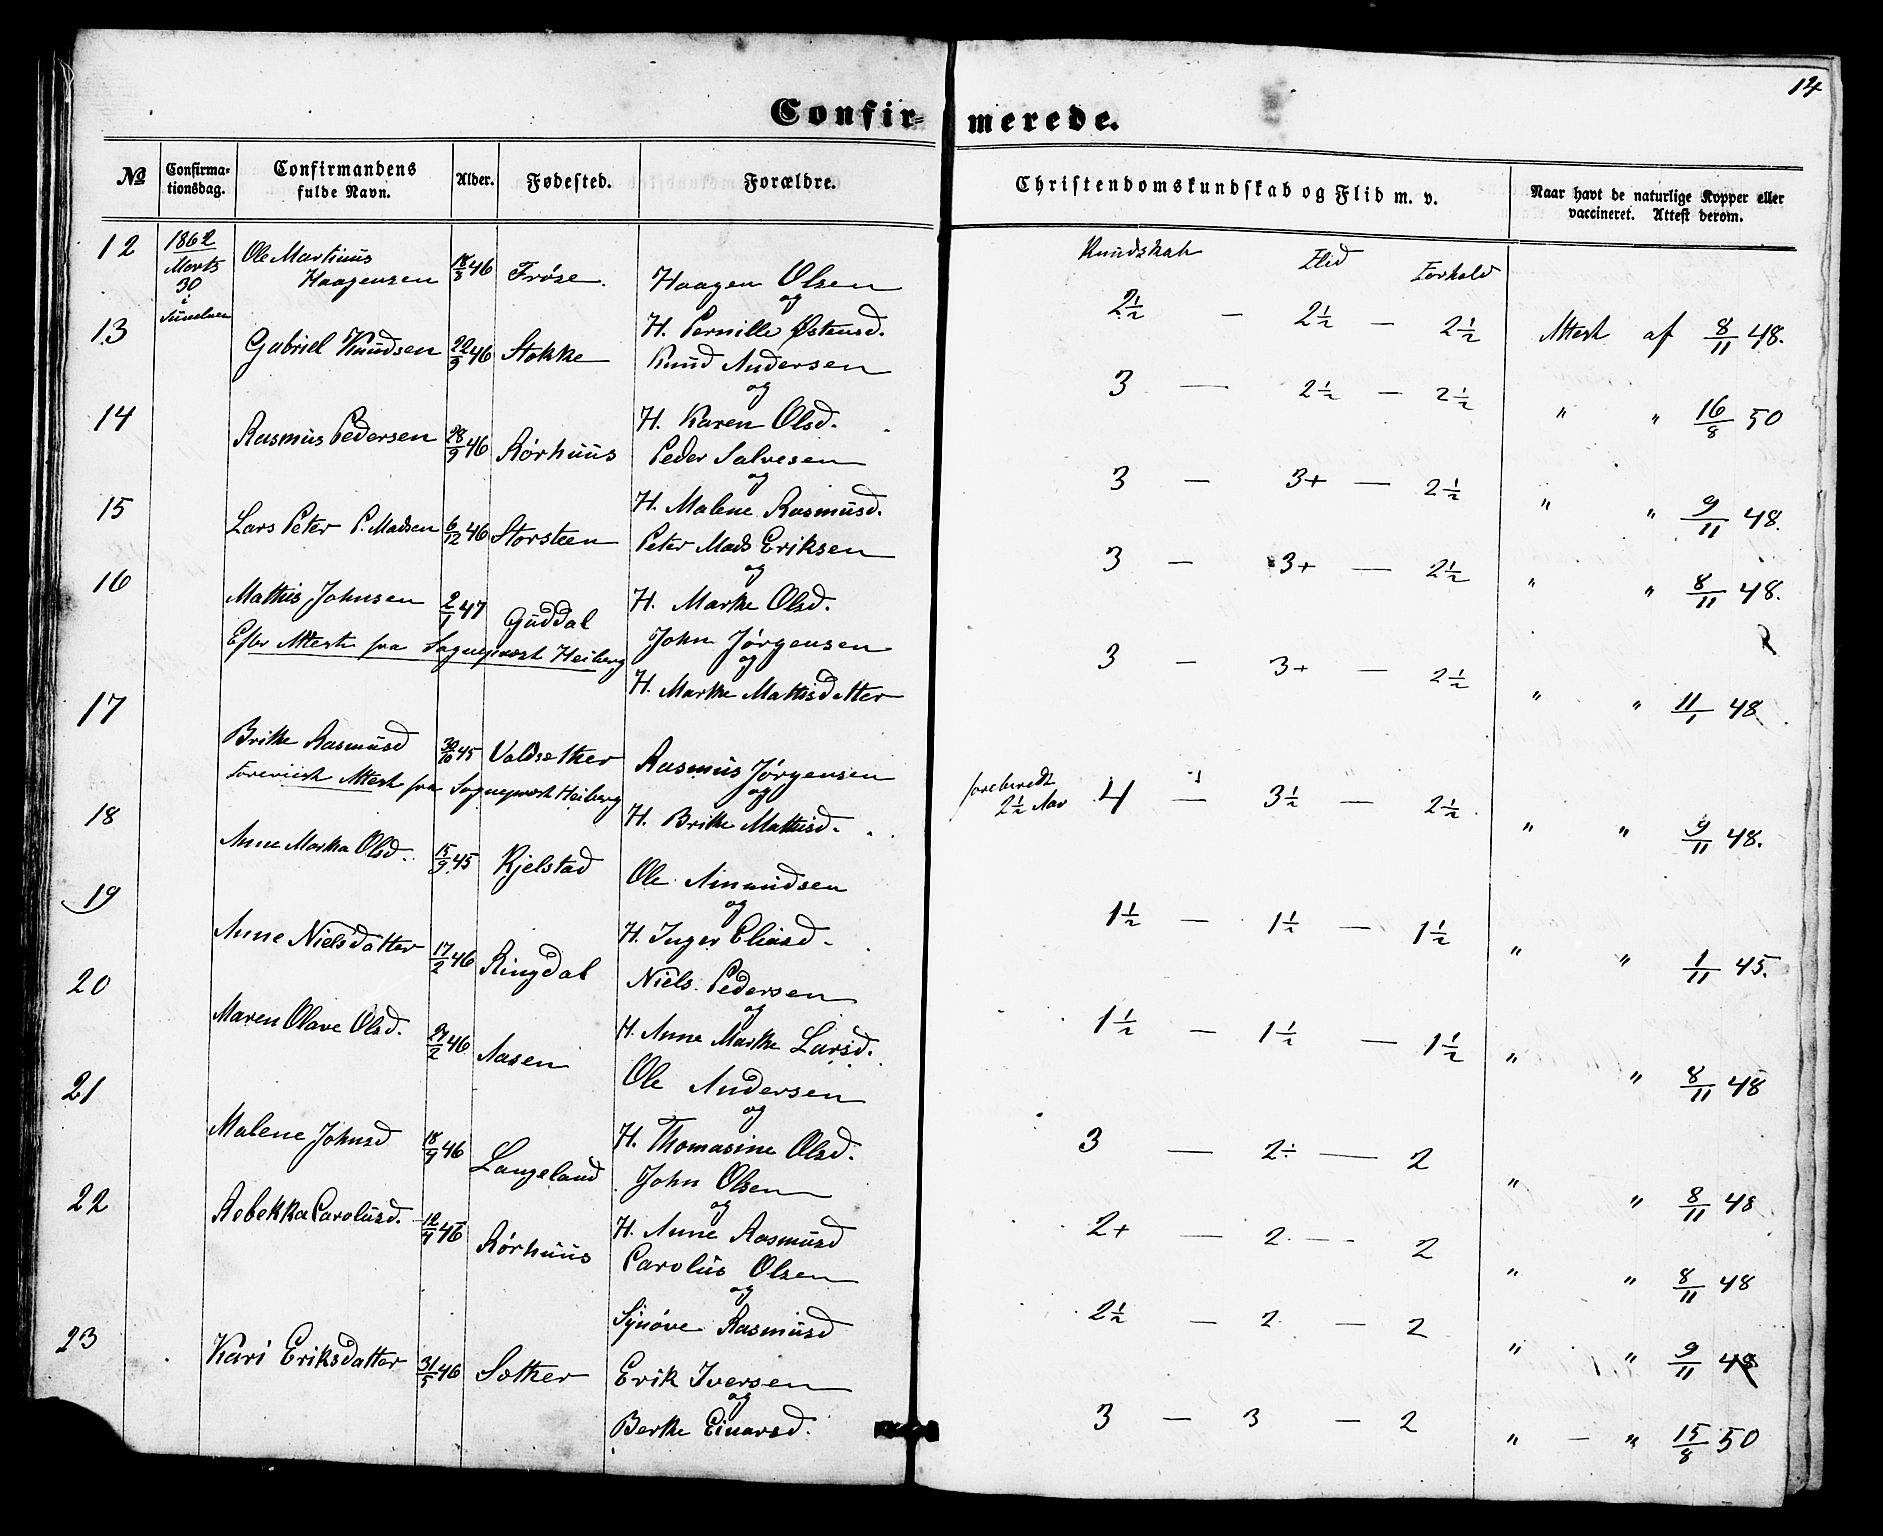 14
Confir- merede.
No Confirma-tionsdag. Confirmandens fulde Navn. Alder. Fødested. Forældre. Christendomskundskab og Flid m. v. Naar havt de naturlige Kopper eller vaccineret. Attest derom.
Kundskab Flid Forhold
12 1862 Marts 30 i Ole Martinus Haagensen 18/8 46 Frøse. Haagen Olsen
og
H. Pernille Østensd. 2½ — 2½ — 2½ Attest af 8/11 48.
13 Gabriel Knudsen 22/9 46 Stokke Knud Andersen
og
H. Karen Olsd. 3 — 2½ — 2½ " " 16/8 50
14 Rasmus Pedersen 28/9 46 Rørhuus Peder Salvesen
og
H. Malene Rasmusd. 3 — 3+ — 2½ " " 9/11 48.
15 Lars Peter P. Madsen 6/12 46 Storsteen Peter Mads Eriksen
og
H. Marthe Olsd. 3 — 3+ — 2½ " " 8/11 48.
16 Mathis Johnsen 2/1 47 Guddal John Jørgensen
Efter Attest fra Sognepræst Heiberg
og
H. Marthe Mathisdatter 3 — 3+ — 2½ " " 11/1 48
17 Brithe Rasmusd 30/10 45 Valdsæther Rasmus Jørgensen
Foreviist Attest fra Sognepræst Heiberg
og
H. Brithe Mathisd. foreberedt 2½ Aar 4 — 3½ — 2½ " " 9/11 48.
18 Anne Martha Olsd. 15/9 45 Kjelstad Ole Amundsen
og
H. Inger Eliasd. 1½ — 1½ — 1½ " " 1/11 45.
19 Anne Nielsdatter 17/2 46 Ringdal Niels Pedersen
og
H. Anne Marthe Larsd. 1½ — 1½ — 1½ " " 8/11 48
20 Maren Olave Olsd. 24/2 46 Aasen Ole Andersen
og
H. Thomasine Olsd. 3 — 2÷ — 2 " " 8/11 48
21 Malene Johnsd 18/4 46 Langeland John Olsen
og
H. Anne Rasmusd 2+ — 2 — 2 " " 8/11 48
22 Rebekka Carolusd. 12/4 46 Rørhuus Carolus Olsen
og
Synøve Rasmusd 2½ — 2 — 2 " " 9/11 48
23 Kari Eriksdatter 31/5 46 Sæther Erik Iversen
og
Berthe Einarsd. 3 — 3 — 2 " — " 15/8 50